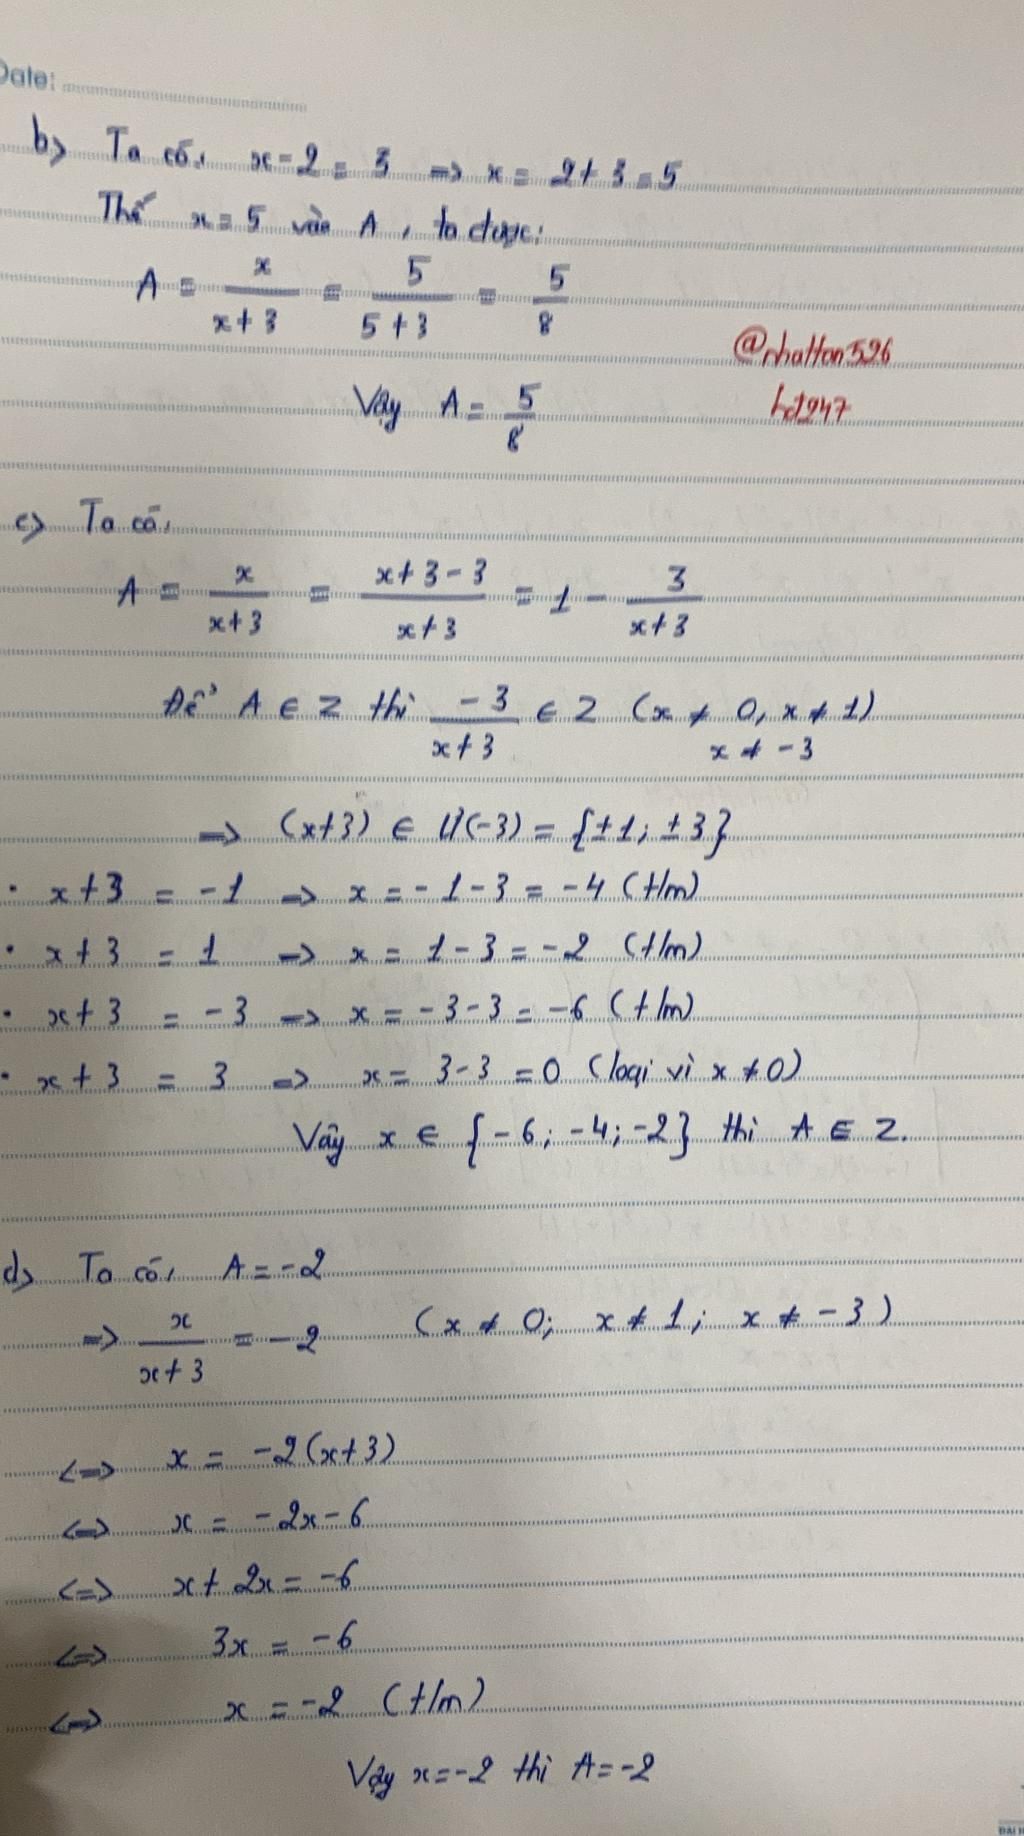 Date:
b) Ta có, x - 2 = 3 => x = 2 + 3 = 5
Thế x = 5 vào A, ta được:
A = x/(x+3) = 5/(5+3) = 5/8
@nhatton526
Vậy A = 5/8
c) Ta có,
A = x/(x+3) = (x+3-3)/(x+3) = 1 - 3/(x+3)
Để A ∈ Z thì -3/(x+3) ∈ Z (x ≠ 0, x ≠ 1)
x ≠ -3
=> (x+3) ∈ Ư(-3) = {±1; ±3}
• x+3 = -1 => x = -1-3 = -4 (t/m)
• x+3 = 1 => x = 1-3 = -2 (t/m)
• x+3 = -3 => x = -3-3 = -6 (t/m)
• x+3 = 3 => x = 3-3 = 0 (loại vì x ≠ 0)
Vây x ∈ {-6; -4; -2} thì A ∈ Z.
d) Ta có, A = -2
=> x/(x+3) = -2 (x ≠ 0; x ≠ 1; x ≠ -3)
<=> x = -2(x+3)
<=> x = -2x-6
<=> x + 2x = -6
<=> 3x = -6
<=> x = -2 (t/m)
Vậy x = -2 thì A = -2